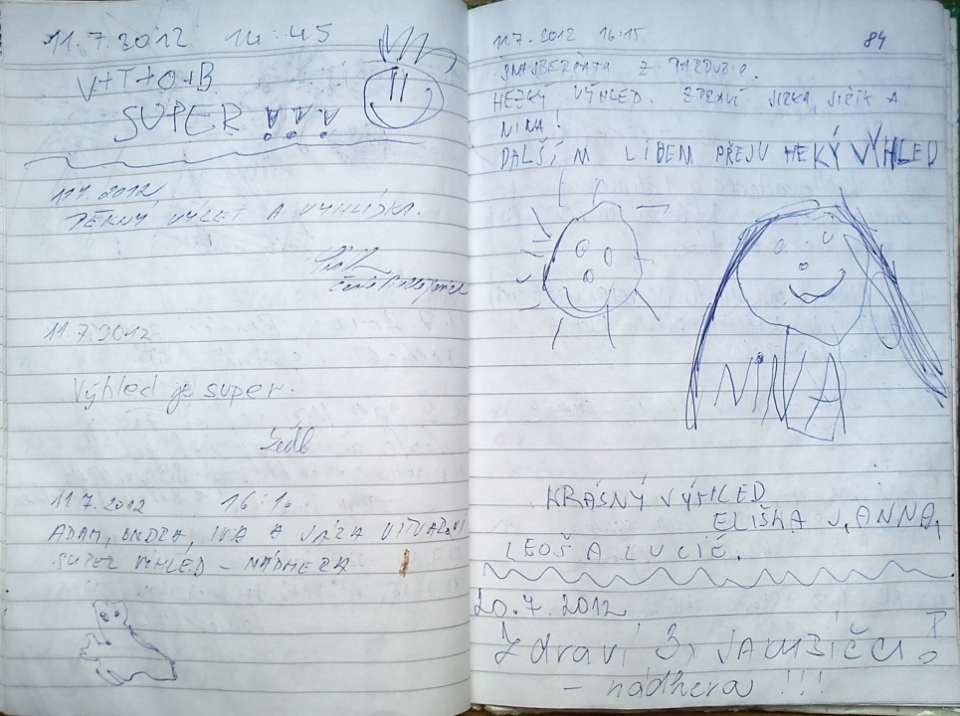 11.7.2012 14:45
V+T+O+B
SUPER !!!
11.7.2012
PĚKNÝ VÝLET A VYHLÍDKA.
11.7.2012
Výhled je super.
Sedl
11.7.2012 16:10
ADAM, ONDRA, IVA A
SUPER VÝHLED – NÁDHERA
11.7.2012 16:15
84
Z PARDUBIC.
HEZKÝ VÝHLED. ZDRAVÍ JIRKA, JIŘÍK A
NINA!
DALŠÍM LIDEM PŘEJU HEKÝ VÝHLED
NINA
KRÁSNÝ VÝHLED
ELIŠKA J, ANNA,
LEOŠ A LUCIE.
20.7.2012
Zdraví 3
– nádhera !!!